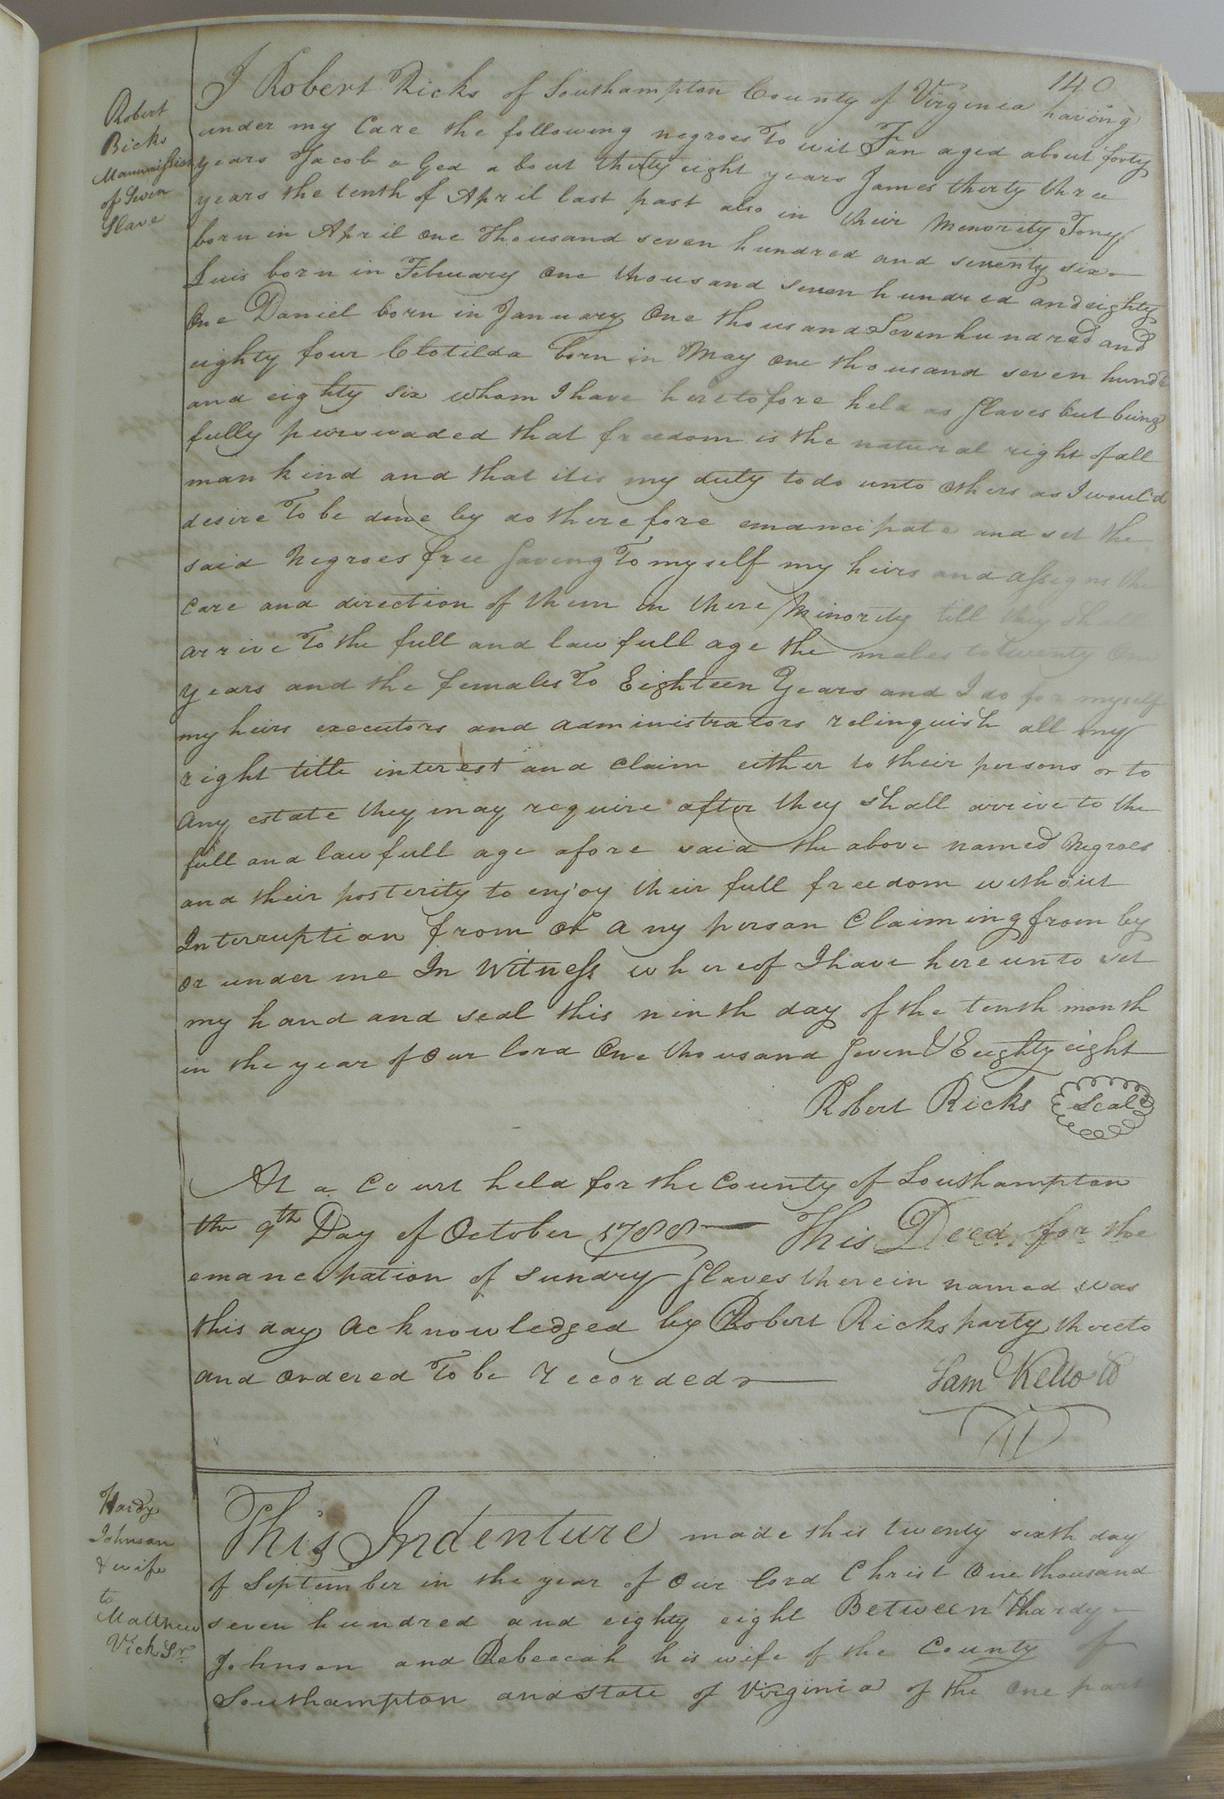 140
Robert
Ricks
Manumission
of Seven
Slave
I Robert Ricks of Southampton County of Virginia having
under my Care the following negroes To wit Fan aged about forty
years Jacob a Ged about thirty eight years James thirty three
years the tenth of April last past also in their Minority Tony
born in April One Thousand seven hundred and seventy six
Luis born in February One thousand seven hundred and eighty
One Daniel born in January One thousand Seven hundred and
eighty four Clotilda born in May One thousand seven hundd
and eighty six whom I have heretofore held as Slaves but being
fully perswaded that freedom is the natural right of all
man kind and that it is my duty to do unto others as I would
desire To be done by do therefore emancipate and set the
said Negroes free Saveing To myself my heirs and assigns the
Care and direction of them in there Minority till they shall
arrive To the full and law full age the males to twenty One
Years and the females To Eighteen Years and I do for myself
my heirs executors and administrators relinquish all my
right title interest and Claim either to their persons or to
any estate they may require after they shall arrive to the
full and law full age afore said the above named Negroes
and their posterity to enjoy their full freedom without
Interruption from of any person Claiming from by
or under me In Witness whereof I have here unto set
my hand and seal this ninth day of the tenth month
in the year of Our lord One thousand Seven & Eeighty eight
Robert Ricks Seal
At a Court held for the County of Southampton
the 9th Day of October 1788 This Deed for the
emancipation of sundry Slaves therein named was
this day Acknowledged by Robert Ricks party thereto
and Ordered To be recorded
Sam Kello
Hardy
Johnson
& wife
to
Matthew
Vick Sr
This Indenture made this twenty sixth day
of September in the year of Our lord Christ One thousand
seven hundred and eighty eight Between Hardy
Johnson and Rebeccah his wife of the County of
Southampton and state of Virginia of the One part